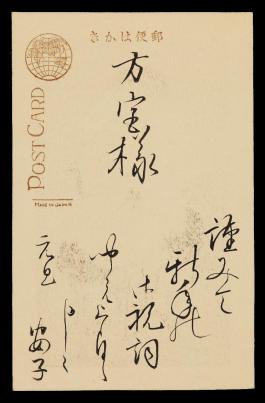 きかは便郵
POST CARD
Made in Japan
方宝様
謹みて
新年の
御祝詞
申上げ
元旦
安子